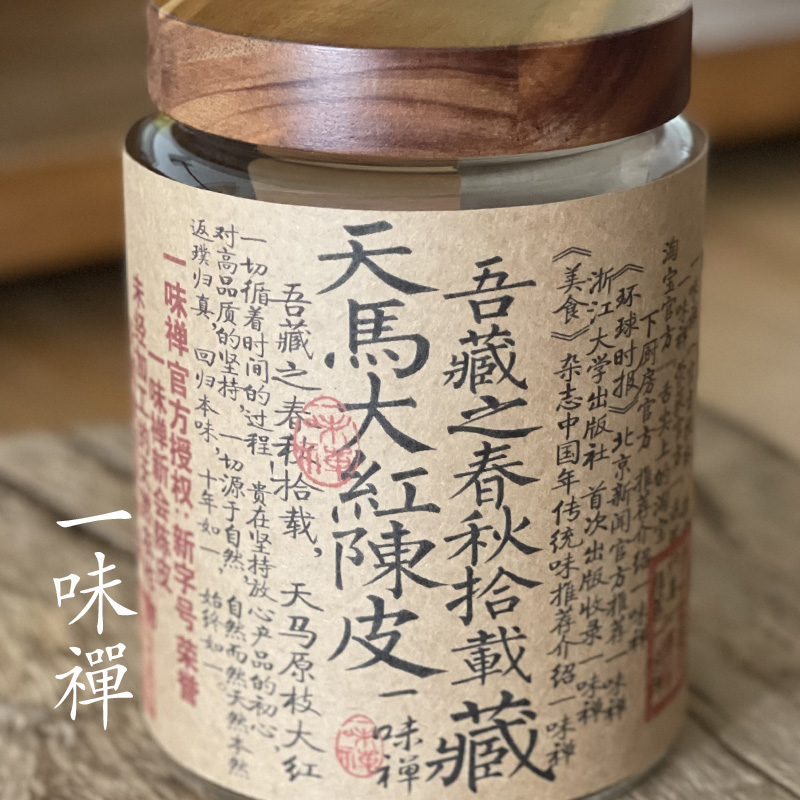 淘宝官方
下厨房官方 推荐介绍一味禅
《环球时报》北京新闻官方推荐一味禅
浙江大学出版社 首次出版收录一味禅
《美食》杂志中国年传统味推荐介绍一味禅
吾藏之春秋拾載藏
天馬大紅陳皮一味禅
吾藏之春秋拾载，天马原枝大红
一切循着时间的过程！贵在坚持放心产品的初心，
对高品质的坚持，一切源于自然，自然而然天然本然
返璞归真，回归本味，十年如一，始终如一。
一味禅官方授权·新字号 荣誉
一味禅新会陈皮
一味禪